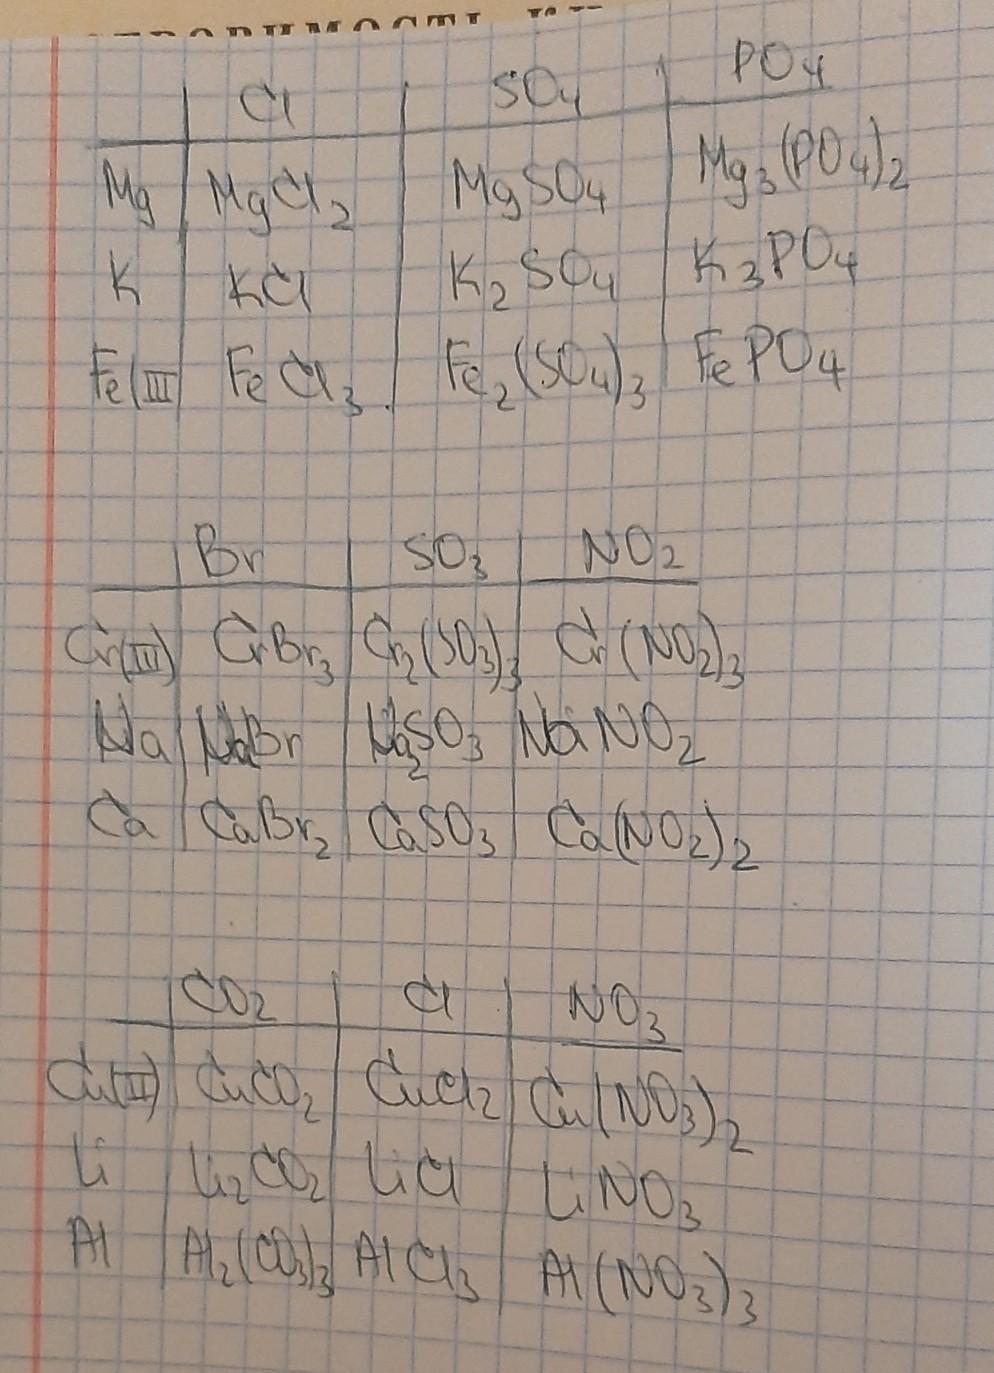 Cl SO4 PO4
Mg MgCl2 MgSO4 Mg3(PO4)2
K KCl K2SO4 K3PO4
Fe(III FeCl3. Fe2(SO4)3 FePO4
Br SO3 NO2
Cr(III) CrBr3 Cr2(SO3)3 Cr(NO2)3
Na NaBr Na2SO3 NaNO2
Ca CaBr2 CaSO3 Ca(NO2)2
CO2 Cl NO3
Cu(II) CuCO2 CuCl2 Cu(NO3)2
Li Li2CO2 LiCl LiNO3
Al Al2(CO3)3 AlCl3 Al(NO3)3